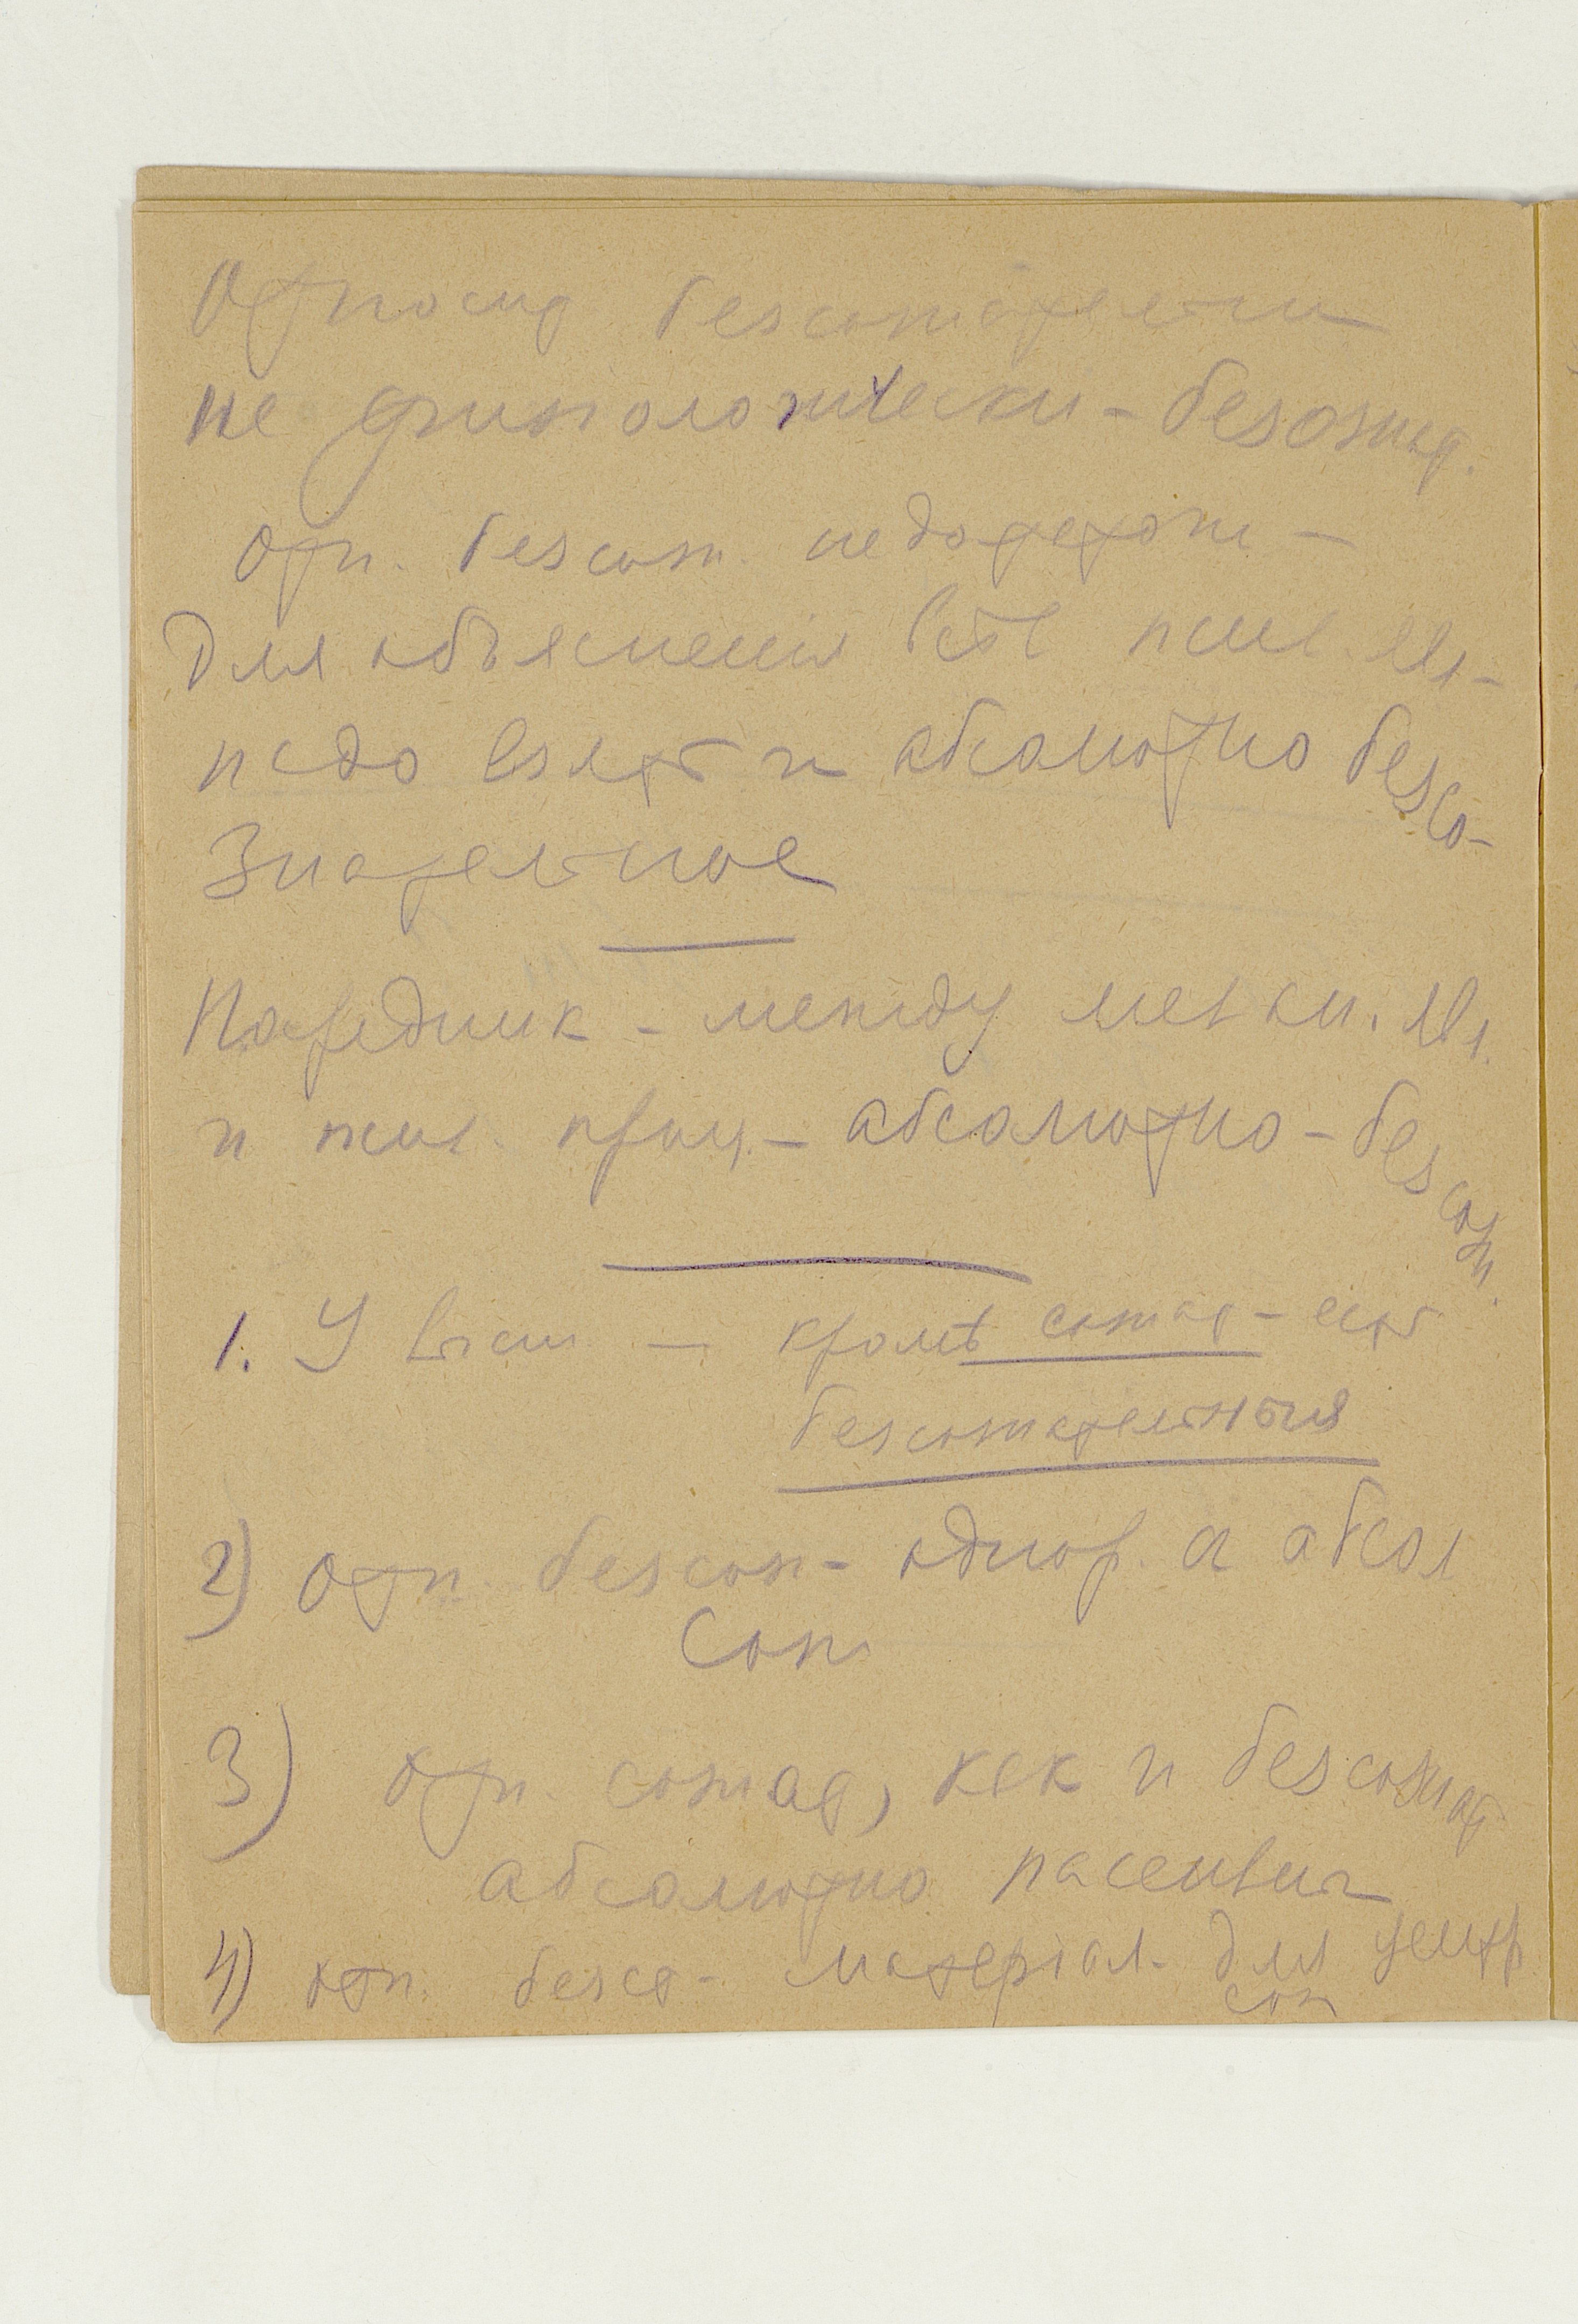 Относит безсознательн
не физиологически - безсознат.
отн. безсозн. недостаточн -
Для объясненія всѣхъ псих. яв-
надо взять и абсолютно безсо-
знательное
Посредник - между
и псих. - абсолютно - безсозн.
1. У - кромѣ сознат - есть
безсознательныя
2) отн. безсозн - однор. а абсол
Созн
3) отн. сознат, как и безсознат
абсолютно пассивны
4) отн. безсо - матеріал для центр
созн